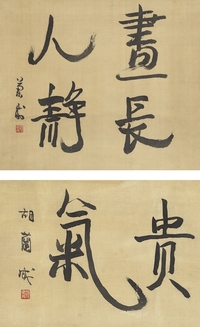 晝長
人靜
蘭成
貴氣
胡蘭成